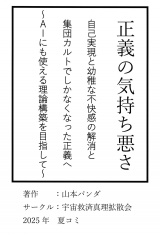 正義の気持ち悪さ
自己実現と幼稚な不快感の解消と
集団カルトでしかなくなった正義へ
～AIにも使える理論構築を目指して～
著作　：山本パンダ
サークル：宇宙救済真理拡散会
2025年　夏コミ